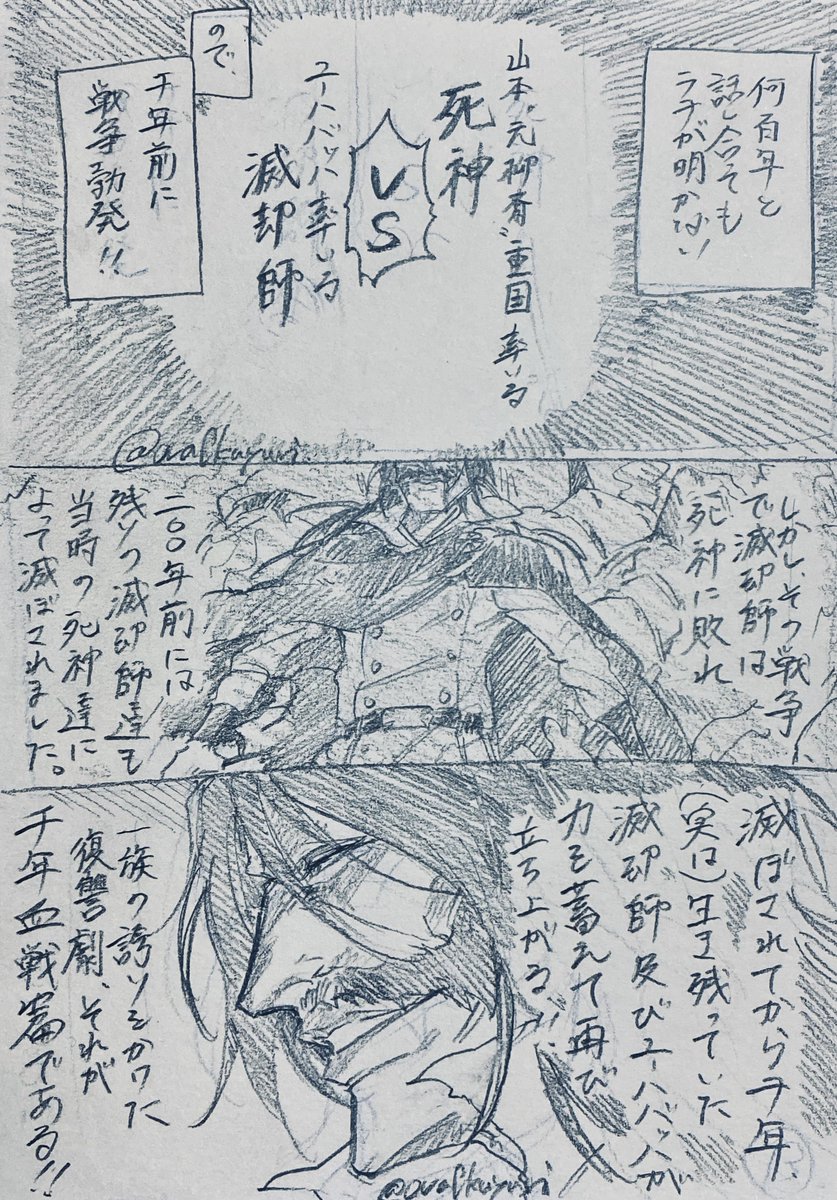 何百年と
話し合っても
ラチが明かない
山本元柳斎重国率いる
死神
VS
ユーハバッハ率いる
滅却師
ので、
千年前に
戦争勃発!!
しかし、その戦争
で滅却師は
死神に敗れ
二〇〇年前には
残りの滅却師達も
当時の死神達に
よって滅ぼされました。
滅ぼされてから千年、
(実は)生き残っていた
滅却師及びユーハバッハが
力を蓄えて再び
立ち上がる!!
一族の誇りをかけた
復讐劇、それが
千年血戦篇である!!